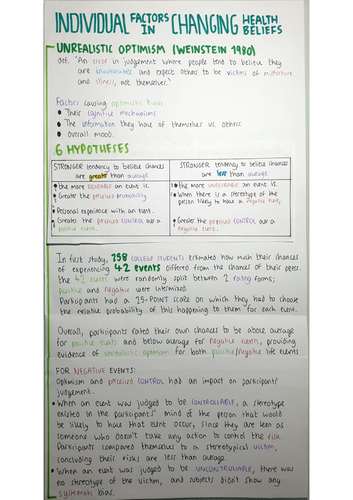 INDIVIDUAL FACTORS IN CHANGING HEALTH BELIEFS
UNREALISTIC OPTIMISM (WEINSTEIN 1980)
def. "An error in judgement where people tend to believe they
are invulnerable and expect others to be victims of misfortune
and illness, not themselves."
Factors causing optimistic bias
• Their cognitive mechanisms
• The information they have of themselves vs. others
• Overall mood.
6 HYPOTHESES
STRONGER tendency to believe chances
are greater than average
• The more DESIRABLE an event is.
• Greater the perceived probability
• Personal experience with an event.
• Greater the perceived CONTROL over a
positive event.
STRONGER tendency to believe chances
are less than average
• The more UNDESIRABLE an event is.
• When there is a stereotype of the
person likely to have a negative event,
• Greater the perceived CONTROL over a
negative event.
In first study, 258 COLLEGE STUDENTS estimated how much their chances
of experiencing 42 EVENTS differed from the chances of their peers.
The 42 events were randomly split between 2 rating forms;
positive and negative were intermixed.
Participants had a 15-POINT scale on which they had to choose
the relative probability of this happening to them for each event.
Overall, participants rated their own chances to be above average
for positive events and below average for negative events, providing
evidence of unrealistic optimism for both positive/negative life events
FOR NEGATIVE EVENTS:
Optimism and perceived CONTROL had an impact on participants'
judgement.
• When an event was judged to be CONTROLLABLE, a stereotype
existed in the participants' mind of the person that would
be likely to have that event occur, since they are seen as
someone who doesn't take any action to control the risk.
Participants compared themselves to a stereotypical victim,
concluding their risks are less than average.
• When an event was judged to be UNCONTROLLABLE, there was
no stereotype of the victim, and subjects didn't show any
systematic bias.